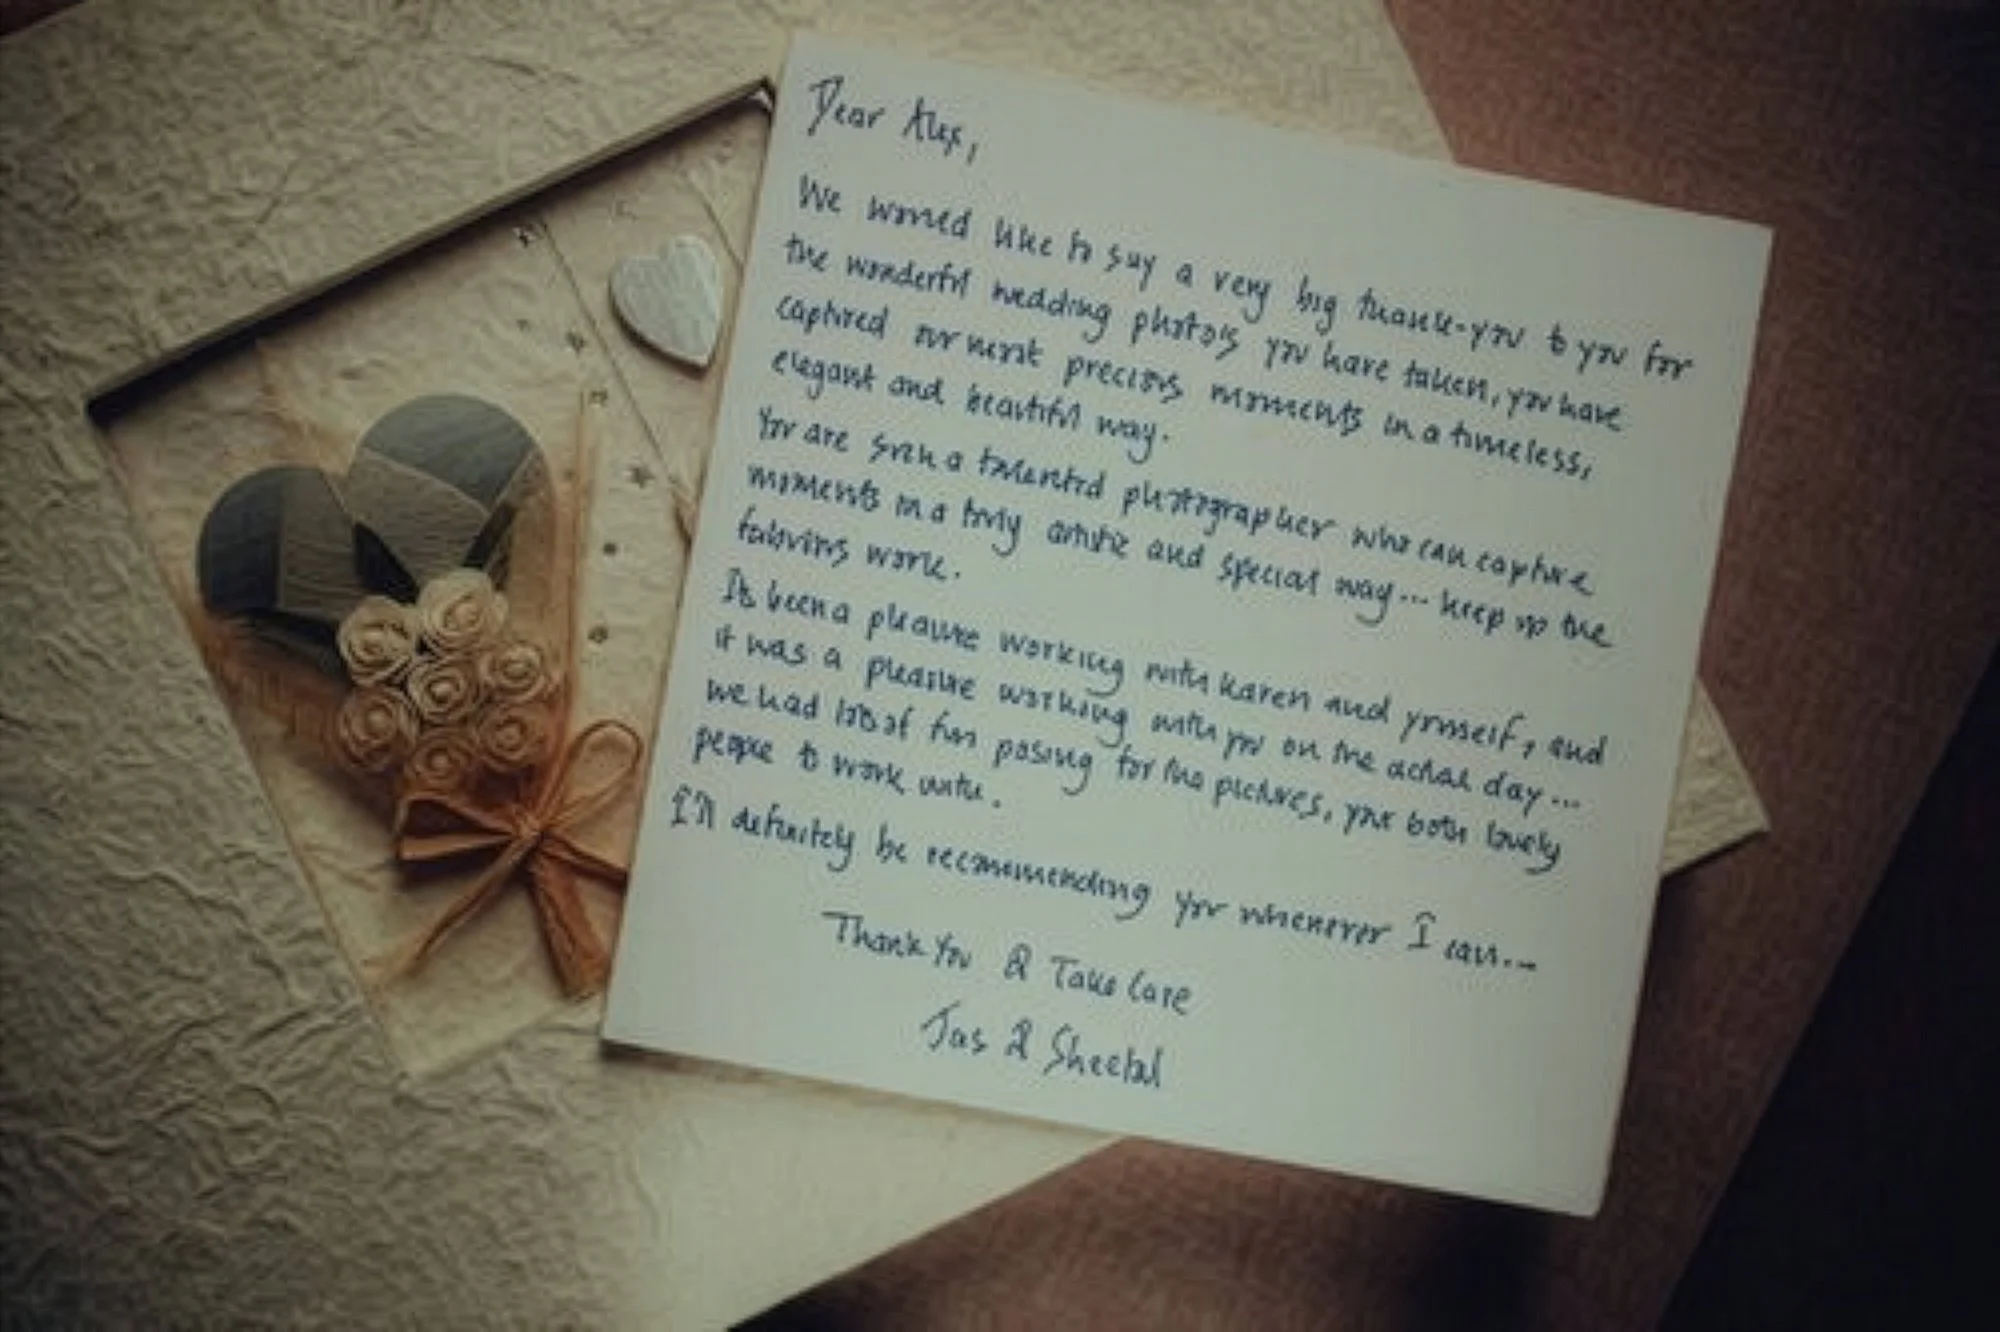 Dear Alex,
We would like to say a very big thank-you to you for
the wonderful wedding photos you have taken, you have
captured our most precious moments in a timeless,
elegant and beautiful way.
You are such a talented photographer who can capture
moments in a truly artistic and special way... keep up the
fabulous work.
Its been a pleasure working with Karen and yourself, and
it was a pleasure working with you on the actual day...
we had lots of fun posing for the pictures, your both lovely
people to work with.
I'll definitely be recommending you whenever I can...
Thank You & Take Care
Jas & Sheetal